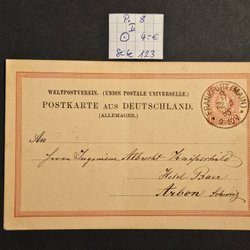 P. 8
I
4.-€
Seite 123
WELTPOSTVEREIN. (UNION POSTALE UNIVERSELLE.)
POSTKARTE AUS DEUTSCHLAND.
(ALLEMAGNE.)
FRANKFURT (MAIN)
An
Herrn Ingenieur Albrecht
Hotel Baer
Arbon Schweiz